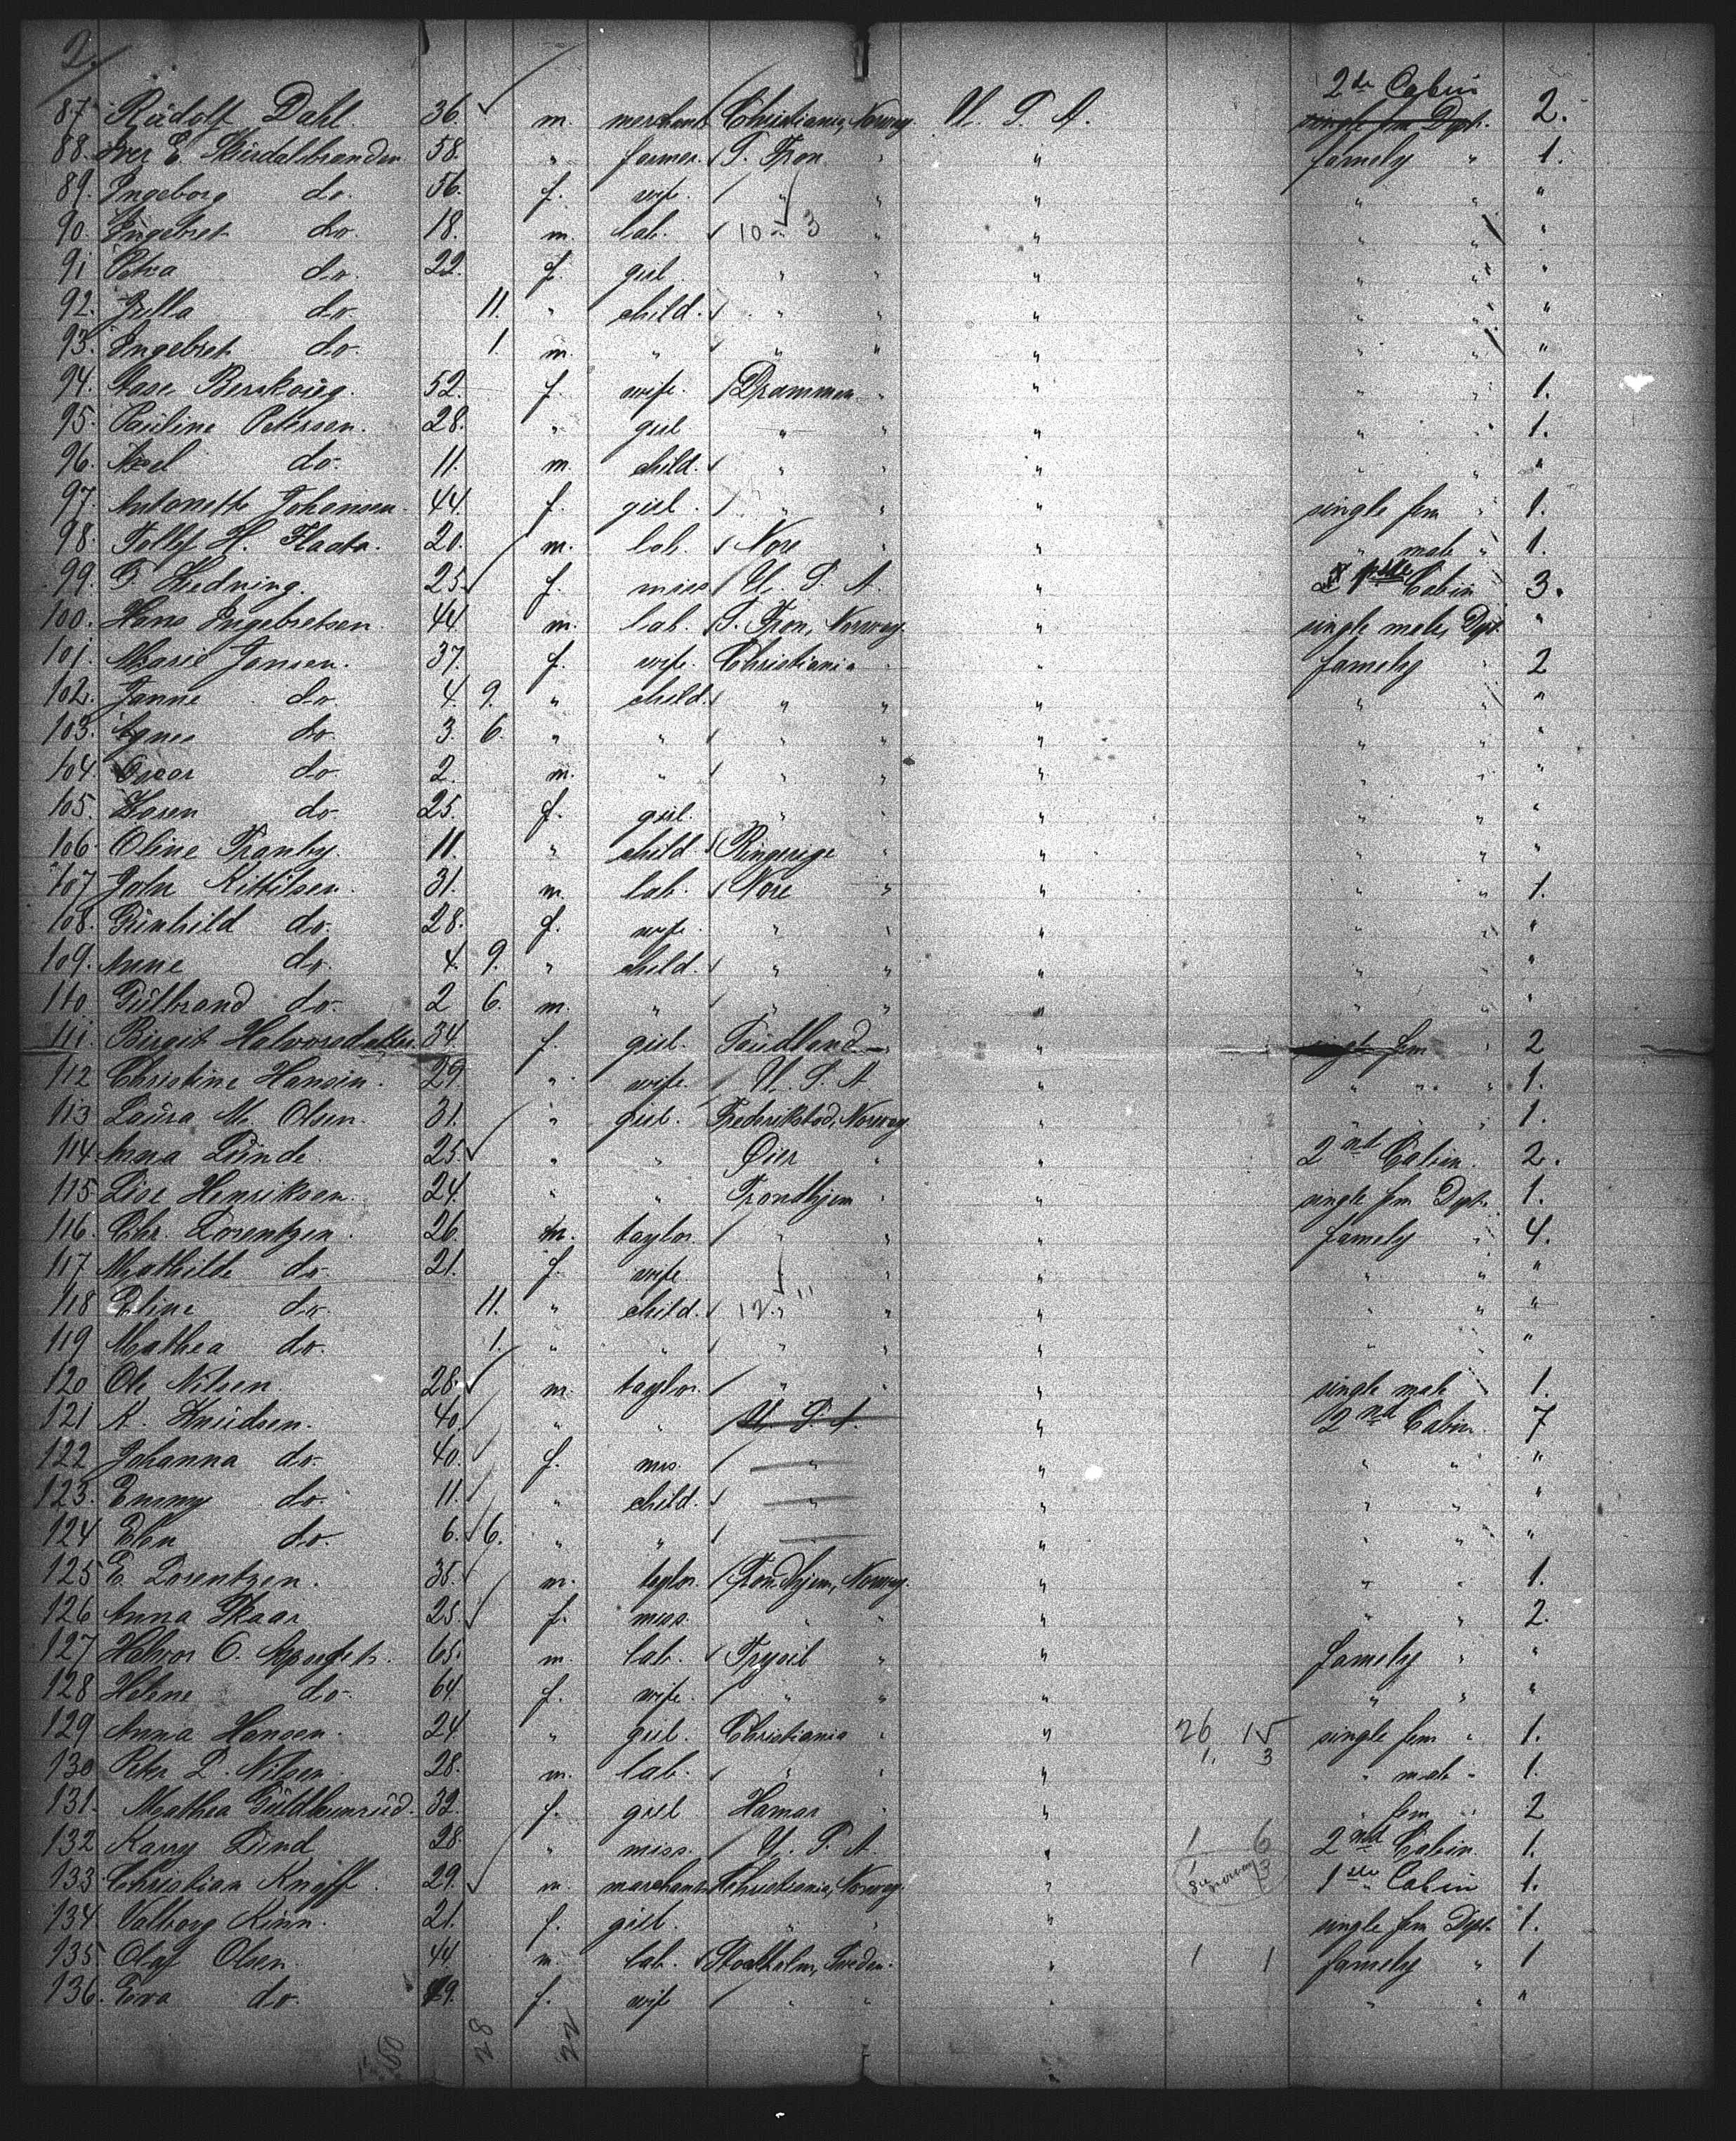 2.
87. Rudolf Dahl. 36. m. merchant Christiania, Norway. U. S. A. 2de Cabin single fem Dpt. 2.
88. Iver E. 58. " farmer. S. Fron. " " famely " 1.
89. Ingeborg do. 56. f. wife. " " " " " "
90. Engebret do. 18. m. lab. 10 - 3 " " " " "
91 Petra do. 22. f. girl. " " " " " "
92. Julla do. 11. " child. " " " " " "
93. Engebret do. 1. m. " " " " " " "
94. Aase 52. f. wife. Drammen " " " " 1.
95. Pauline Petersen. 28. " girl. " " " " " 1.
96. Axel do. 11. m. child. " " " " " "
97. Antonette Johansen. 44. f. girl. " " " single fem " 1.
98. Tollef H. Flaata. 20. m. lab. Nore " " " male " 1.
99. F Hedning. 25. f. miss U. S. A. " Cabin 3.
100. Hans Ingebretsen. 44. m. lab. S. Fron, Norway. " single male, Dpt. "
101. Marie Jansen. 37. f. wife. Christiania " " famely " 2
102. Janne do. 4. 9. " child. " " " " " "
103. Agnes do. 3. 6. " " " " " " " "
104. Oscar do. 2. m. " " " " " " "
105. Karen do. 25. f. girl. " " " " " "
106. Oline Tranby. 11. " child. Ringerige " " " " "
107 John Kittilsen. 31. m. lab. Nore " " " " 1.
108. Gunhild do. 28. f. wife. " " " " " "
109. Anne do. 4. 9. " child. " " " " " "
110. Gulbrand do. 2 6. m. " " " " " " "
111. Birgit Halvorsdatter. 34. f. girl. " fem " 2
112 Christine Hansen. 29 " wife. U. S. A. " " " " 1.
113 Laura M. Olsen. 31. " girl. Frederikstad, Norway. " " " " 1.
114. Anna Lunde. 25. " " Oier " " 2nd Cabin. 2.
115 Lise Henriksen. 24. " " Trondhjem " " single fem Dpt. 1.
116. Chr. Lorentzen. 26. m. taylor. " " " famely " 4.
117 Mathilde do. 21. f. wife " " " " " "
118 Eline do. 11. " child. 12 " 11 " " " " "
119 Mathea do. 1. " " " " " " " "
120 Ole Nilsen. 28. m. taylor. " " " single male " 1.
121 K. Knudsen. 40. " " U. S. A. " 2nd Cabin. 7
122 Johanna do. 40. f. mrs. " " " " "
123. Emmy do. 11. " child. " " " " "
124 do. 6. 6. " " " " " "
125 E. Lorentzen. 35. m. taylor. Trondhjem, Norway. " " " 1.
126 Anna Skaar 25. f. miss. " " " " " 2.
127 Halvor O. 65. m. lab. Trysil " " famely " "
128 Helene do. 64. f. wife. " " " " " "
129 Anna Hansen. 24 " girl. Christiania " " 26 15 single fem " 1.
130 Peter L. Nilsen. 28. m. lab. " " " 1, 3 " male " 1.
131. Mathea 32. f. girl Hamar " " " fem " 2
132 Karry Lund 28. " miss. U. S. A. " 1 6 2nd Cabin 1.
133. Christian Knoff. 29. m. marchant Christiania, Norway. " 1 3 1ste Cabin 1.
134 Valborg Kinn. 21. f. girl. " " " single fem Dpt. 1.
135. Olaf Olsen. 44. m. lab. Stockholm, Sweden. " 1 1 famely " 1
136. Eva do. 49. f. wife " " " " " "
50 28 22